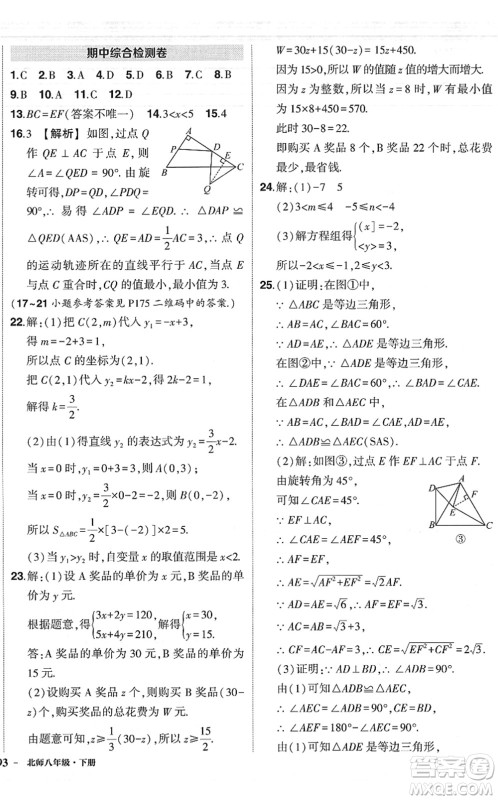 期中综合检测卷
1.C 2.B 3.A 4.C 5.B 6.C 7.C 8.B
9.B 10.D 11.A 12.C
13.BC=EF(答案不唯一) 14.3<x<5 15.4
16.3 【解析】如图,过点 Q
作 QE⊥AC 于点 E,则
∠A=∠QED=90°.由旋
转可得,DP=QD,∠PDQ=
90°,∴易得∠ADP=
∠EQD=90°-∠EDQ,∴△DAP≌
△QED(AAS),∴QE=AD=1/2AC=3,∴点 Q
的运动轨迹所在的直线平行于AC,∴当点 E
与点 C 重合时,CQ 的值最小,最小值为3.
(17~21 小题参考答案见 P175 二维码中的答案.)
22.解:(1)把 C(2,m)代入 y₁=-x+3,得
m=-2+3=1,
所以点 C 的坐标为(2,1).
把 C(2,1)代入 y₂=kx-2,得1=2k-2,
解得 k=3/2.
(2)由(1)得直线 y₂ 的表达式为 y₂=3/2x-2.
当 x=0 时,y₁=0+3=3,所以 A(0,3);
当 x=0 时,y₂=3/2×0-2=-2,所以 B(0,-2),
所以 S△ABC=1/2×[3-(-2)]×2=5.
(3)当 y₁>y₂ 时,自变量 x 的取值范围是 x<2.
23.解:(1)设 A 奖品的单价为 x 元,B 奖品的单
价为 y 元.
根据题意,得{3x+2y=120, 5x+4y=210,解得{x=30, y=15.
答:A 奖品的单价为30元,B 奖品的单价为
15元.
(2)设购买 A 奖品 z 个,则购买 B 奖品(30-
z)个,购买奖品的总花费为 W 元.
由题意可知,z≥1/3(30-z),解得 z≥15/2.
93 - 北师八年级·下册
W=30z+15(30-z)=15z+450.
因为15>0,所以 W 随着 z 的增大而增大.
因为 z 为整数,所以当 z=8 时,W 有最小值
15×8+450=570.
此时30-8=22.
即购买 A 奖品8个,B 奖品22个,总花费
最少,最省钱.
24.解:(1)-7 5
(2)3<m≤4 -5≤n<-4
(3)解方程组得{[x]=-2, <y>=3.
∴-2≤x<-1,2≤y<3.
25.(1)证明:在图①中,
∵△ABC 是等边三角形,
∴AB=AC.
∵AD=AE,∴△ADE 是等边三角形.
在图②中,
∵△ADE 是等边三角形,
∴∠DAE=∠CAB,
∴∠CAE=∠BAD.
∵AB=AC,∠CAE=∠BAD,AD=AE,
∴△ABD≌△ACE(SAS).
(2)解:如图③,过点 E 作 EF⊥AC 于点 F.
由旋转角为45°,
可知∠CAE=45°.
∵EF⊥AC,
∴∠AEF=45°,
∴AF=EF,
∴AE=√(AF²+EF²)=√2AF.
∵AE=AD=√6,∴AF=EF=√3.
∵∠ACE=30°,∴CE=2EF=2√3,
∴CF=AC-AF,∴CE=√(EF²+CF²)=2√2.
(3)证明:由(1)可知△ADB≌△AEC,
由(1)可知△ADB≌△AEC,